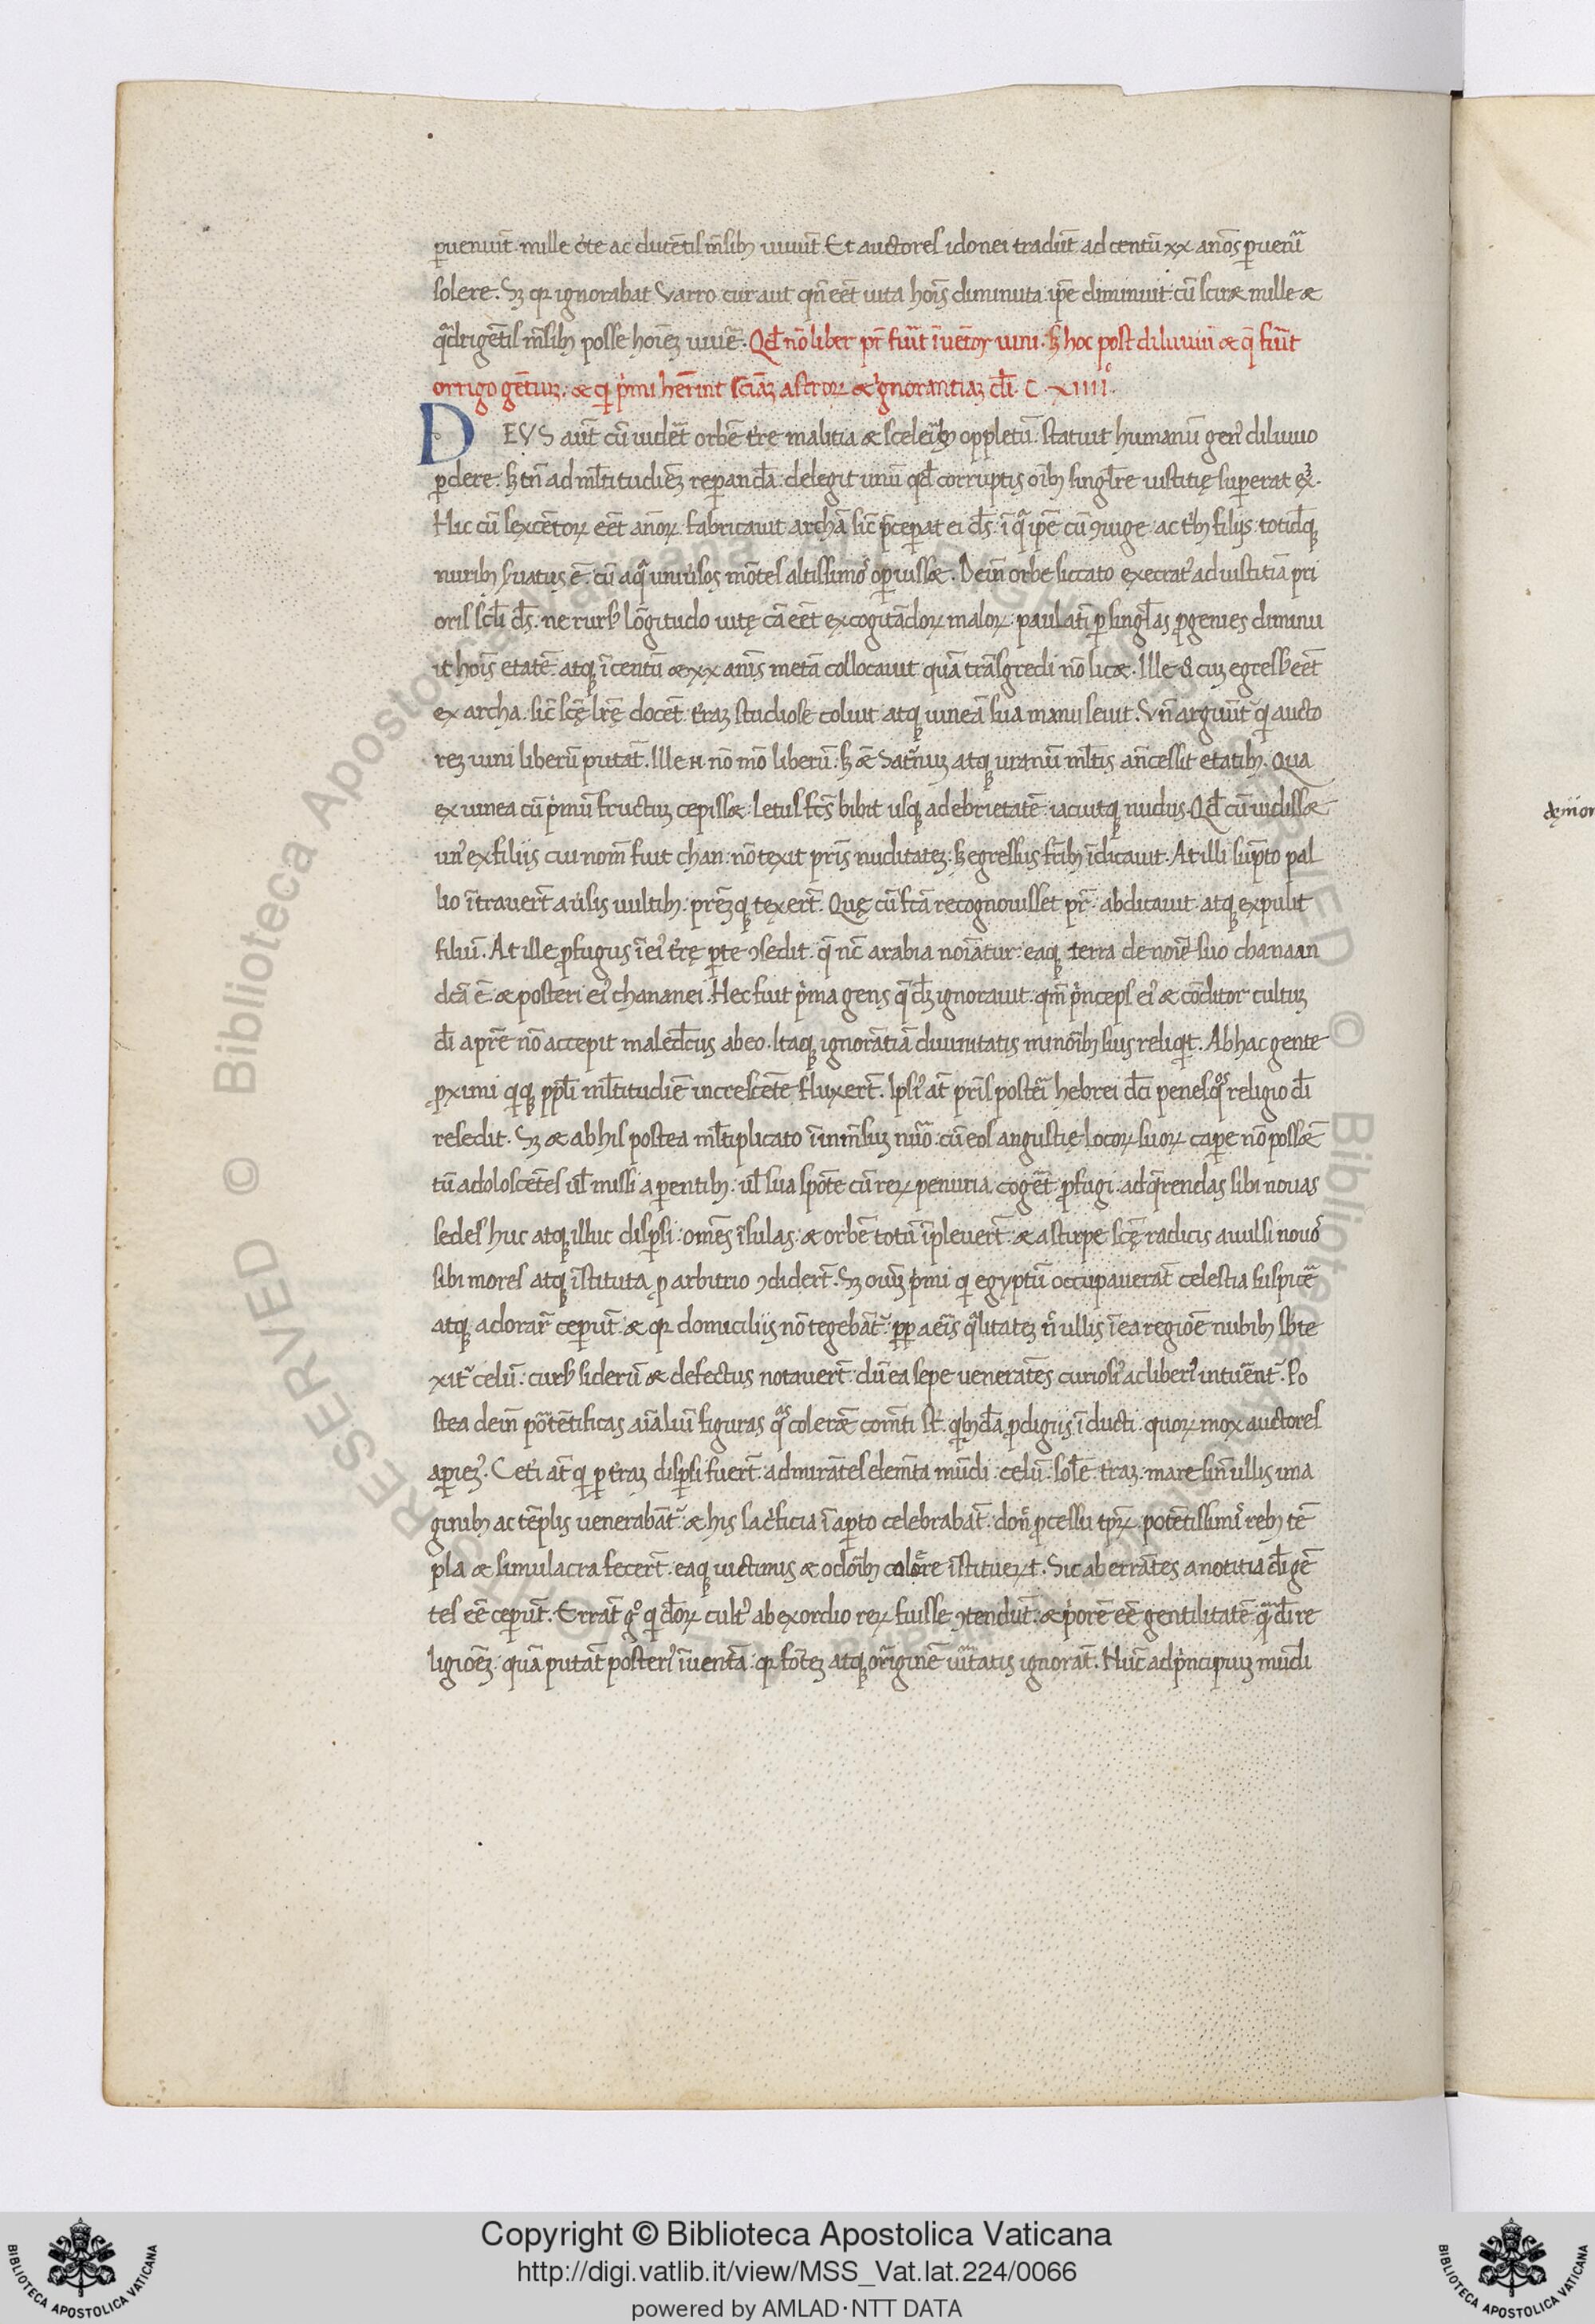 ꝑuenuīt mille c̄te ac ducētis m̄sibꝫ uiuūt. Et auctores idonei tradūt ad centū xx an̄os ꝑuenīr̄
solere. Sꝫ qꝛ ignorabat Varro cur aut qn̄ eēt uita hoīs diminuta ipē diminuit cū sciret mille et
qͣdrigētis m̄sibꝫ posse hoīeꝫ uiuē. Qđ nō liber pr̄ fuīt īuētor uini. sꝫ hoc post diluuiū et q̄ fuīt
orrigo gētiuꝫ. et qi pͥmi hēr̄int sciāꝫ astroꝝ et ignorantiaꝫ dī. C. XIIII°.
DEVS aūt cū uidēt orbē tr̄e malitia et sceleībꝫ oppletū. statuit humanū genꝰ diluuio
ꝑdere. sꝫ tn̄ ad ml̄titudīeꝫ reꝑandā. delegit unū qđ corruptis oībꝫ singl̄re iustitię suꝑerat exꝰ.
Hic cū sexcētoꝝ eēt an̄oꝝ fabricauit archā sic̄ p̄ceꝑat ei ds̄. ī qͣ ipē cū ꝯiuge ac tͥbꝫ filijs totidꝙ
nuribꝫ suatus ē. cū aqͣ uniūsos mōtes altissimoˢ oꝑuisset. Dein̄ orbe siccato execratꝰ ad iustitiā pri
oris scl̄i ds̄. ne rursꝰ lōgitudo uitę cā eēt excogitādoꝝ maloꝝ. paulatī ꝑ singl̄as ꝓgenies diminu
it hoīs etatē. atqꝫ ī centū et xx an̄is metā collocauit quā trāsgredi nō licet. Ille ȣ cuꝫ egressꝰ eēt
ex archa. sic̄ scę lr̄ę docēt. tr̄aꝫ studiose coluit atqꝫ uineā sua manu seuit. Vn̄ arguūtᷣ qi aucto
reꝫ uini liberū putāt. Ille n̄ nō mō liberū. sꝫ ēt Saturnuꝫ atqꝫ uranū ml̄tis an̄cessit etatibꝫ. Qua
ex uinea cū pͥmū fructuꝫ cepisset. letus fcs̄ bibit usqꝫ ad ebrietatē. iacuitqꝫ nudus. Qđ cū uidisset
unꝰ ex filiis cui nom̄ fuit chan. nō texit pr̄is nuditateꝫ. sꝫ egressus fr̄ibꝫ īdicauit. At illi sūpto pal
lio ītrauert̄ au̓sis uultibꝫ. pr̄ēꝫqꝫ texert̄. Quę cū fcā recognouisset pr̄. abdicauit atqꝫ expulit
filiū. At ille ꝓfugus ī eiꝰ tr̄ę ꝑte ꝯsedit. q̄ nc̄ arabia noīatur. eaqꝫ terra de noīe suo chanaan
dcā ē. et posteri eiꝰ chananei. Hec fuit pͥma gens q̄ dꝫ ignorauit. qm̄ pͥnceps eiꝰ et cōditor cultuꝫ
dī a pr̄e nō accepit maledcus ab eo. Itaqꝫ ignorātiā diuinitatis minoībꝫ suis reliqͥt. Ab hac gente
ꝓximi qiqꝫ ppl̄i ml̄titudīe increscēte fluxert̄. Ipsiꝰ at̄ pr̄is posteī hebrei dc̄i penes qͦs religio dī
resedit. Sꝫ et ab his postea ml̄tiplicato ī inm̄suꝫ nūo. cū eos angustię locoꝝ suoꝝ caꝑe nō possēt
tū adoloscētes ul̄ missi a ꝑentibꝫ. ul̄ sua spōte cū reꝝ penuria cogēt ꝓfugi. ad qͥrendas sibi nouas
sedes huc atqꝫ illuc disꝑsi. omēs īsulas. et orbē totū īpleuert̄. et a stirpe scę radicis auulsi nouoˢ
sibi mores atqꝫ īstituta ꝓ arbitrio ꝯdidert̄. Sꝫ oīuꝫ pͥmi qi egyptū occupauerāt celestia suspicē
atqꝫ adorar̄ ceperūt. et qꝛ domiciliis nō tegebātᷣ. ꝓp aeīs qͣlitateꝫ nͨ ullis ī ea regiōe nubibꝫ sbte
xitᷣ celū. cursꝰ siderū et defectus notauert̄. dū ea sepe uenerātes curiosiꝰ ac liberiꝰ intuēntᷣ. Po
stea dein̄ portētificas aīaliū figuras qͣs colerēt com̄ti st̄. qͥbꝫdā ꝓdigiis īducti. quoꝝ mox auctores
aꝑieꝫꝰ. Cet̓i at̄ qi ꝑ tr̄aꝫ disꝑsi fuert̄. admirātes elem̄ta mūdi. celū. solē. tr̄aꝫ. mare sin̄ ullis ima
ginibꝫ ac tēplis uenerabātᷣ. et his sac̓ficia ī aꝑto celebrabāt. donͨ ꝓcessu tꝑꝝ. potētissimiˢ regibꝫ tē
pla et simulacra fecert̄. eaqꝫ uictimis et odoībꝫ colere īstituert̄. Sic aberrātes a notitia dī gē
tes eē ceperūt. Errāt gͦ qi deoꝝ cultꝰ ab exordio reꝝ fuisse ꝯtendūt. et pͥorē eē gentilitatē qͣ dī re
ligiōeꝫ. quā putāt posteriꝰ īuentā. qꝛ fōteꝫ atqꝫ originē uītatis ignorāt. Nūc ad pͥncipiuꝫ mūdi
Copyright © Biblioteca Apostolica Vaticana
http://digi.vatlib.it/view/MSS_Vat.lat.224/0066
powered by AMLAD·NTT DATA
BIBLIOTECA APOSTOLICA VATICANA
BIBLIOTECA APOSTOLICA VATICANA